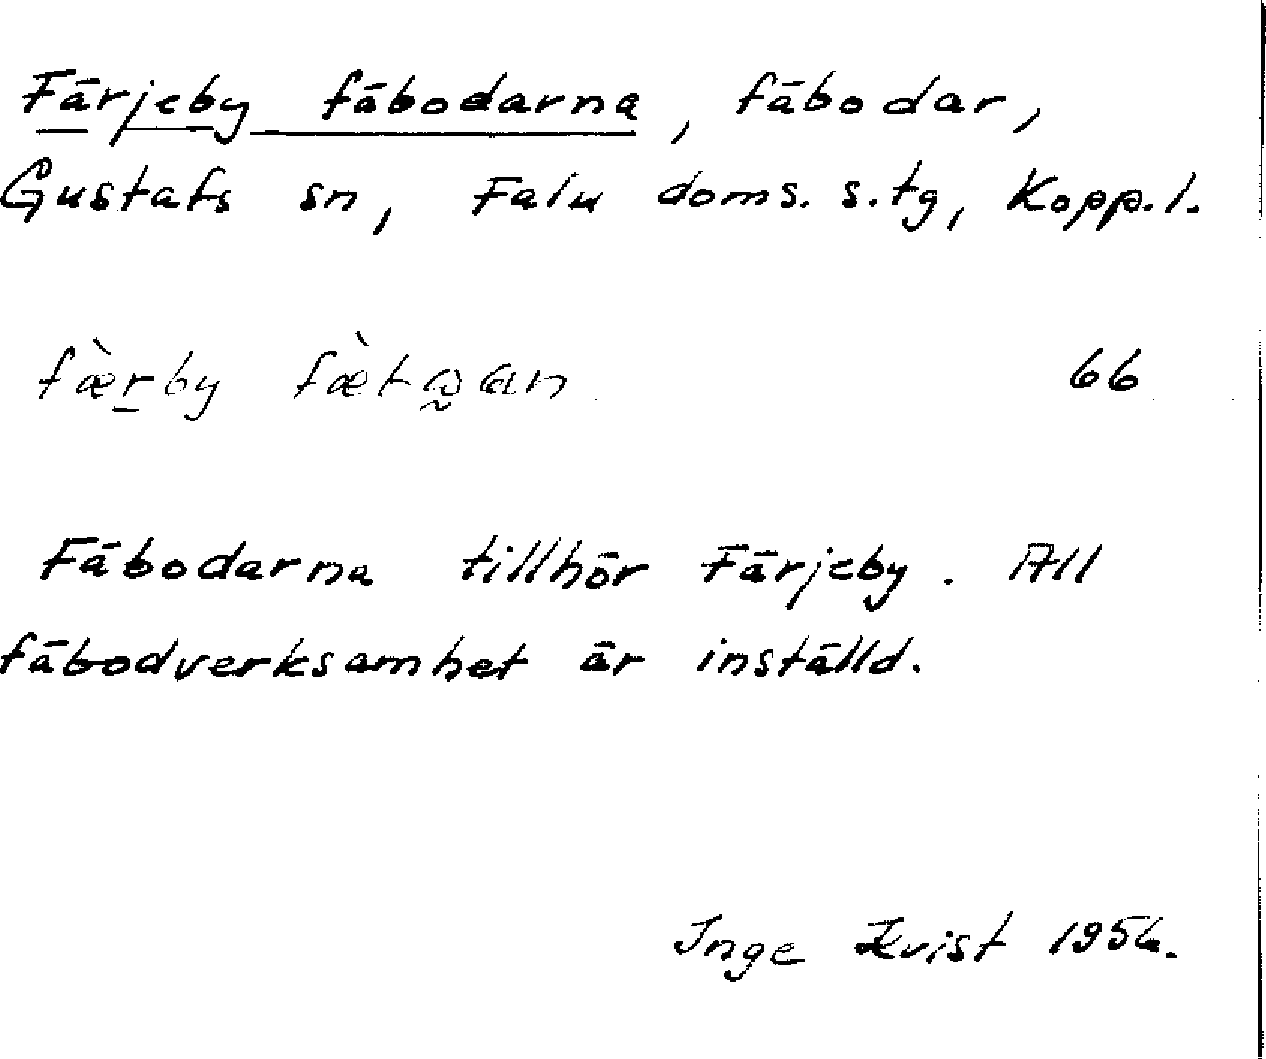 Färjeby fäbodarna, fäbodar,
Gustafs sn, Falu doms. s.tg, Kopp.l.
fæ̀rby 66
Fäbodarna tillhör Färjeby. All
fäbodverksamhet är inställd.
Inge Kvist 1956.